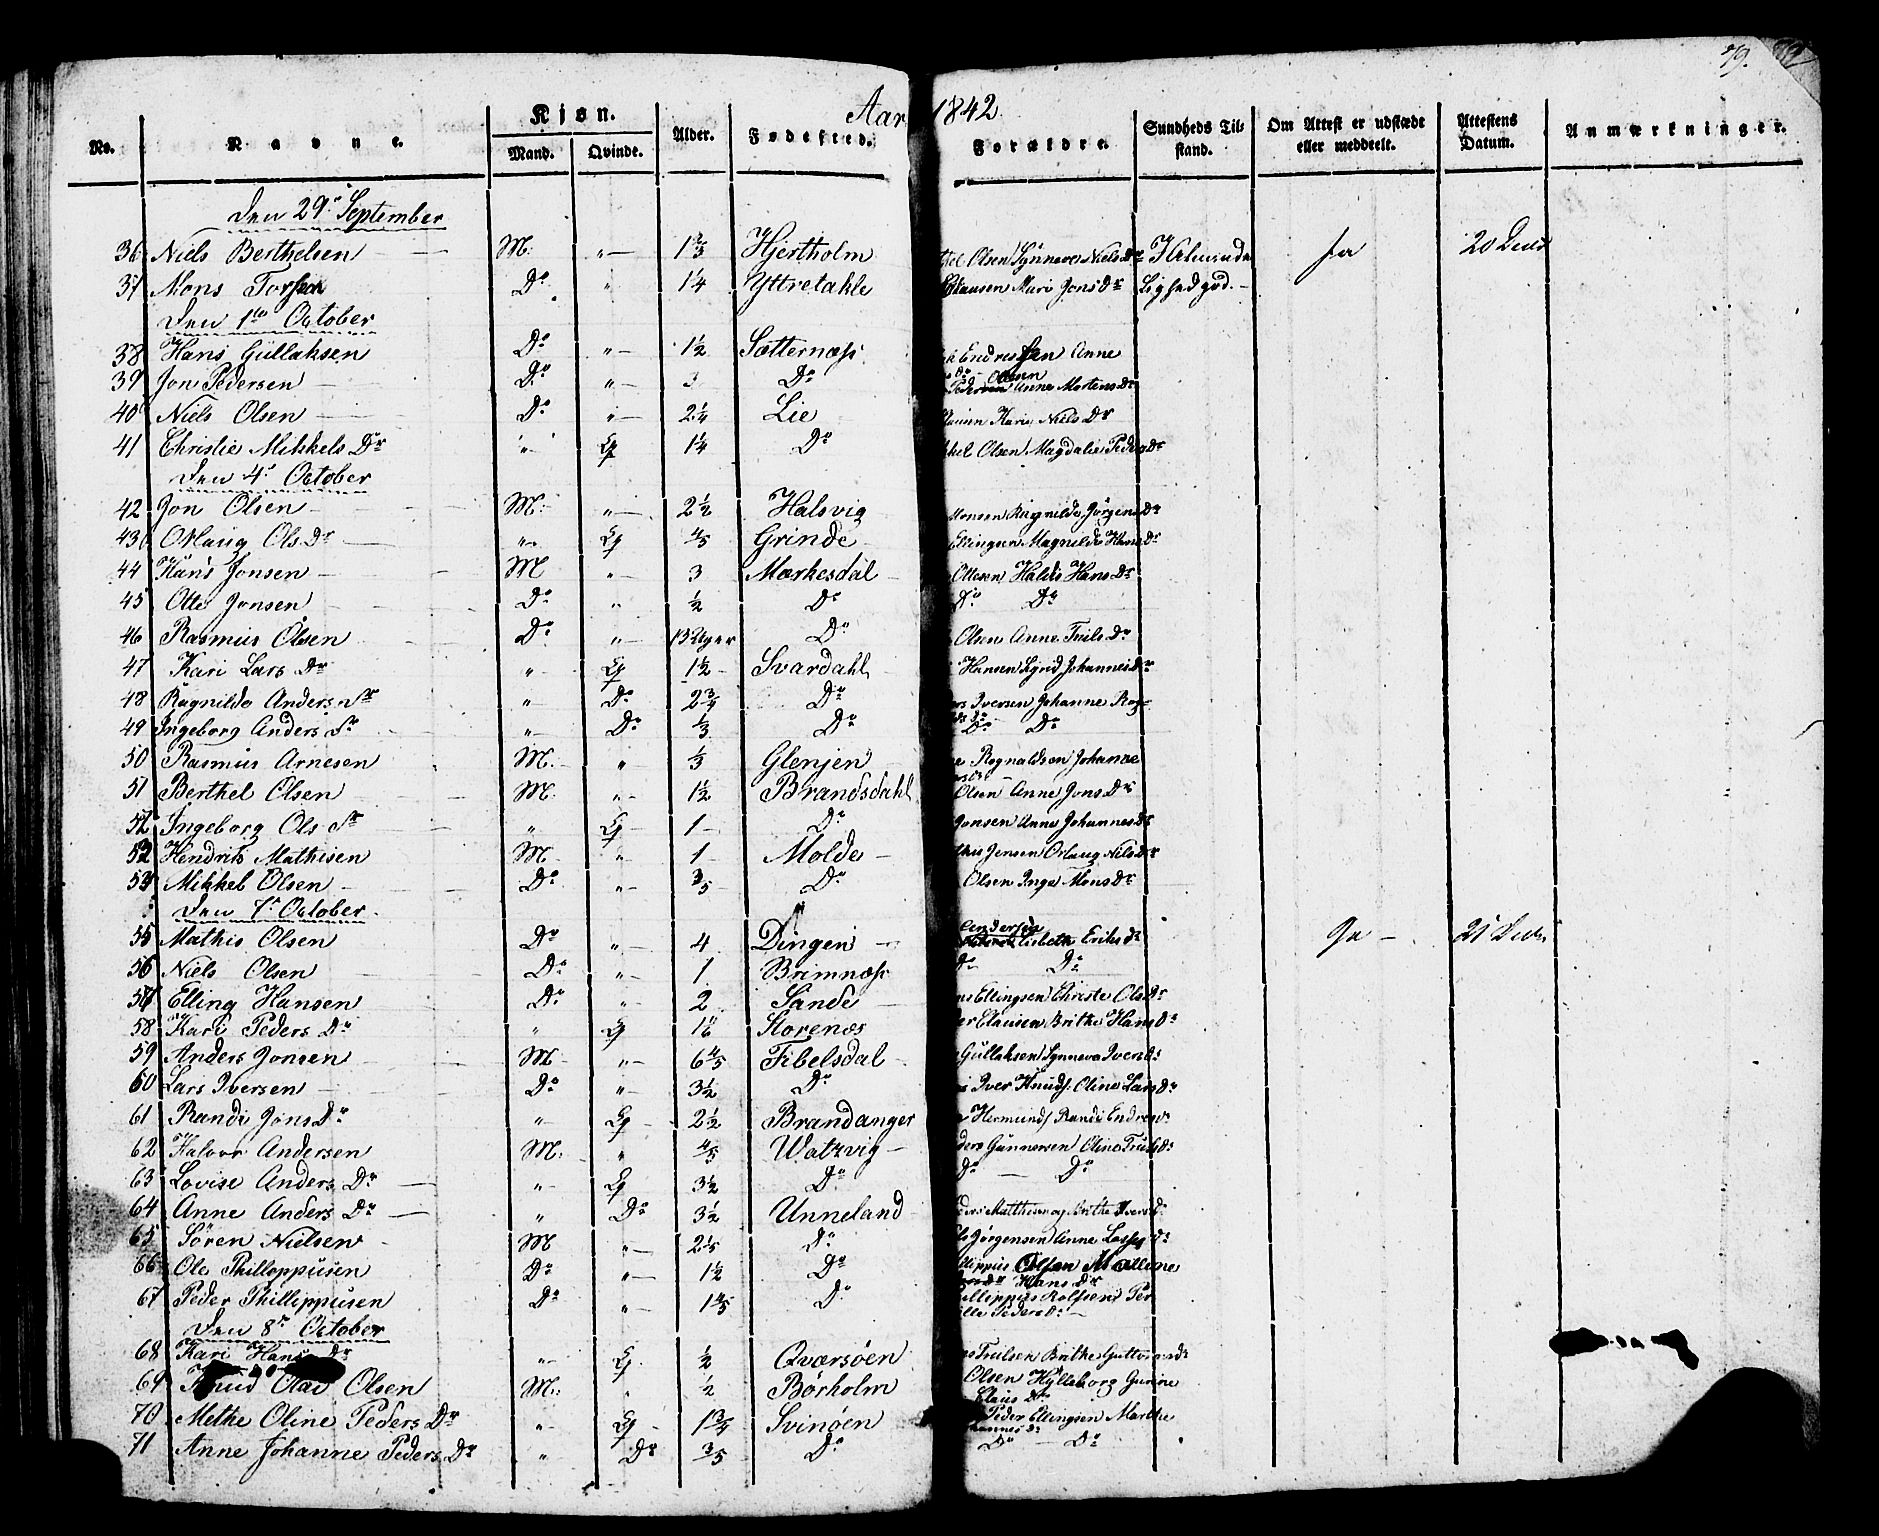 79.
Aar 1842
No. Navne. Kjøn. Alder. Fødested. Forældre. Sundheds Til- Om Attest er udstædt Attestens Anmærkninger.
Mand. Qvinde. stand. eller meddeelt. Datum.
Den 29r September
36 Niels Berthelsen M: " Hjertholm Olsen Synneva Niels Dr Ja
37 Mons Do " 1¼ Yttretahle Mari Jons Dr
Den 1te October
38 Hans Gullaksen Do " 1½ Sætternæs Endresen Anne
39 Jon Pedersen Do " 3 Do Anne Mortens Dr
40 Niels Olsen Do " 2¼ Lie Kari Niels Dr
41 Christie Mikkels Dr " Q 1¼ Do Olsen Magdali Peders Dr
Den 4r October
42 Jon Olsen M: " 2½ Halsvig Monsen Ragnilde Jørgens Dr
43 Ols Dr " Q ⅘ Grinde Magnilde Hans Dr
44 Hans Jonsen M " 3 Markesdal Ottesen Hans Dr
45 Otto Jonsen Do " ½ Do Do Do
46 Rasmus Olsen Do " 13 Uger Do Olsen Anne Truls Dr
47 Kari Lars Dr " Q 1½ Svardahl Hansen Sÿrid Johannes Dr
48 Ragnilde Anders Dr " Do 2¾ Do Iversen Johanne Rog-
49 Ingeborg Anders Dr " Do ⅓ Do Do Do
50 Rasmus Arnesen M. " ⅓ Glenjen Rognaldsen Johanne
51 Berthel Olsen M. " 1½ Brandsdahl Olsen Anne Jons Dr
52 Ingeborg Ols Dr " Q 1 Do Jonsen Anne Johannes Dr
53 Hendrik Mathisen M. " 1 Molde Jensen Orlaug Niels Dr
54 Mikkel Olsen Do " ⅗ Do Olsen Inge Mons Dr
Den 7r October
55 Mathis Olsen Do " 4 Dingen Lisbeth Eriks Dr Ja
56 Niels Olsen Do " 1 Brimnæs Do Do
57 Elling Hansen Do " 2 Sande Ellingsen Christe Ols Dr
58 Kari Peders Dr " Q Storenæs Clausen Brithe Hans Dr
59 Anders Jonsen M. " 6⅘ Fibelsdal Gullaksen Synneva Ivers Dr
60 Lars Iversen Do " 3½ Do Iver Knuds. Oline Lars Dr
61 Randi Jons Dr " Q 2½ Brandanger Hermunds. Randi
62 Halvor Andersen M: " ⅘ Watzvig Gunnersen Oline Truls Dr
63 Lovise Anders Dr " Q 3½ Do Do Do
64 Anne Anders Dr " Do 3½ Unneland Brithe Ivers Dr
65 Sören Nielsen M " 2⅕ Do Jørgensen Anne Dr
66 Ole Phillippusen Do " 1½ Do Olsen Malline
Hans Dr
67 Peder Phillippusen Do " 1⅘ Do Rolfsen Per
Peders Dr
Den 8r October
68 Kari Hans Dr " Q ½ Qværsøen Trulsen Brithe
69 Knud Olai Olsen M: " ½ Børholm Olsen Hylleborg Gurine
Claus Dr
70 Methe Oline Peders Dr " Q 1¾ Svinøen Peder Ellingsen Marthe
71 Anne Johanne Peders Dr " Do ⅗ Do Do Do